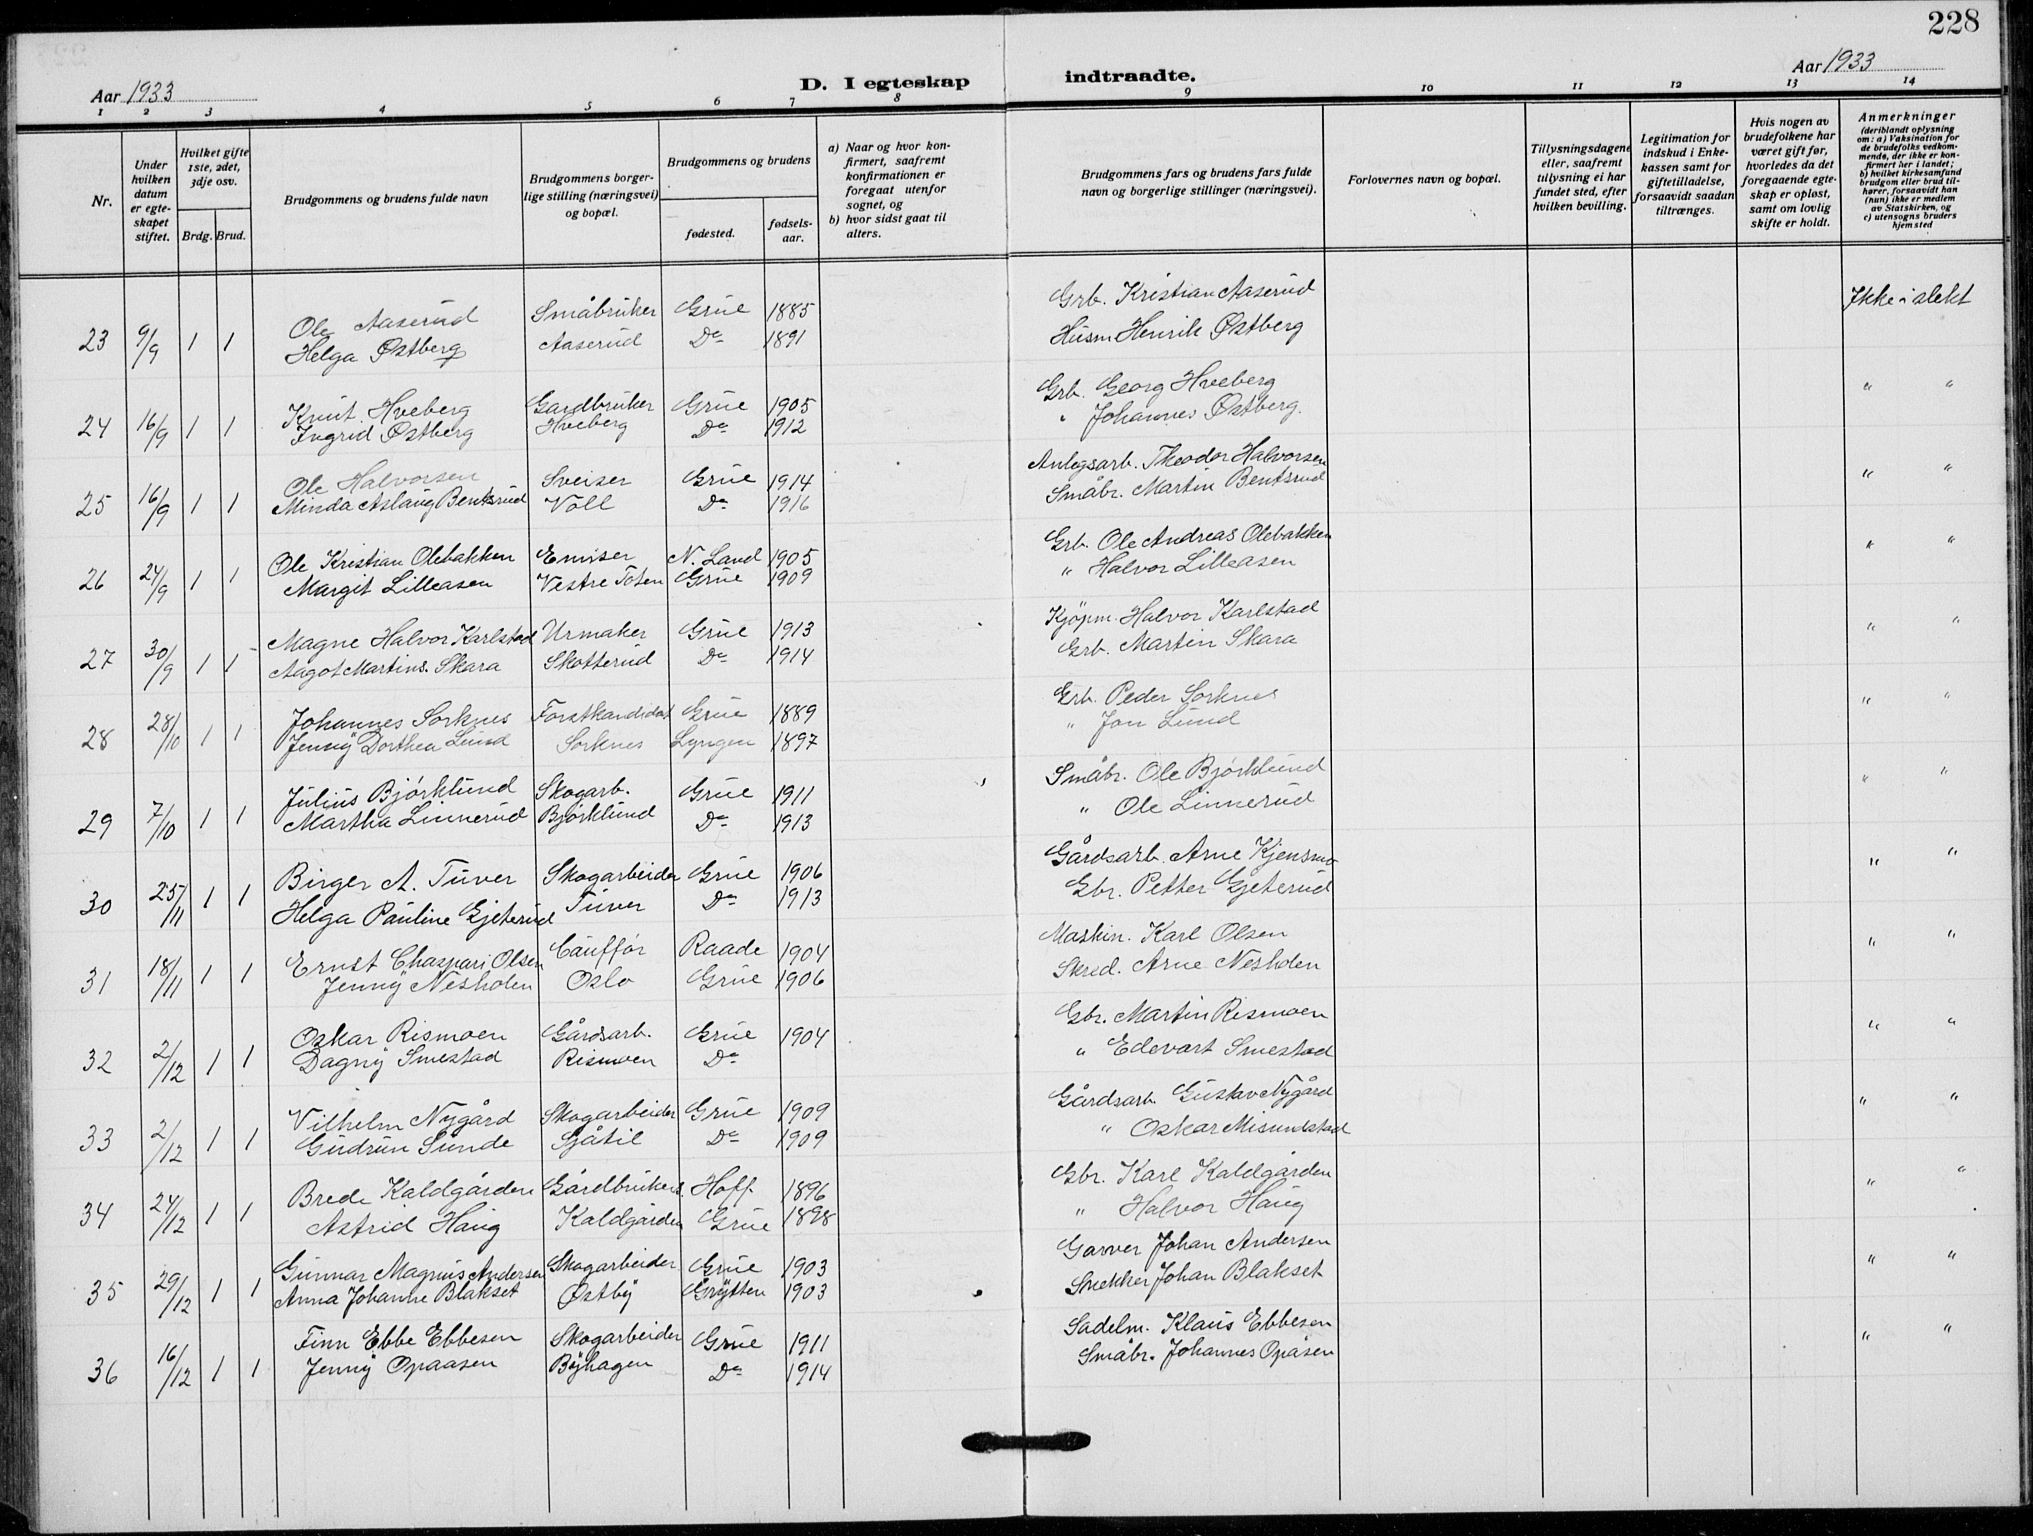 228
Aar 1933
D. I egteskap indtraadte.
Aar 1933
1 2 3 4 5 6 7 8 9 10 11 12 13 14
Nr.
Under hvilken datum er egteskapet stiftet.
Hvilket gifte 1ste, 2det, 3dje osv.
Brdg. Brud.
Brudgommens og brudens fulde navn
Brudgommens borgerlige stilling (næringsvei) og bopæl.
Brudgommens og brudens
fødested.
fødselsaar.
a) Naar og hvor konfirmert, saafremt konfirmationen er foregaat utenfor sognet, og
b) hvor sidst gaat til alters.
Brudgommens fars og brudens fars fulde navn og borgerlige stillinger (næringsvei).
Forlovernes navn og bopæl.
Tillysningsdagene eller, saafremt tillysning ei har fundet sted, efter hvilken bevilling.
Legitimation for indskud i Enkekassen samt for giftetilladelse, forsaavidt saadan tiltrænges.
Hvis nogen av brudefolkene har været gift før, hvorledes da det foregaaende egteskap er opløst, samt om lovlig skifte er holdt.
Anmerkninger (deriblandt oplysning om: a) Vaksination for de brudefolks vedkommende, der ikke er konfirmert her i landet; b) hvilket kirkesamfund brudgom eller brud tilhører, forsaavidt han (hun) ikke er medlem av Statskirken, og c) utensogns bruders hjemsted
Ole Aaserud Småbruker Grue 1885 Grb. Kristian Aaserud Ikke i slekt
23 9/9 1 1 Helga Østberg Aaserud Do 1891 Husm Henrik Østberg
Knut Hveberg Gardbruker Grue 1905 Grb. Georg Hveberg " "
24 16/9 1 1 Ingrid Østberg Hveberg Do 1912 " Johannes Østberg.
Ole Halvorsen Sveiser Grue 1914 Anlegsarb. Theodor Halvorsen " "
25 16/9 1 1 Minda Aslaug Bentsrud Voll Do 1916 Småbr. Martin Bentsrud
Ole Kristian Olebakken N. Land 1905 Grb. Ole Andreas Olebakken " "
26 24/9 1 1 Margit Lilleasen Vestre Toten Grue 1909 " Halvor Lilleasen
Magne Halvor Karlstad Urmaker Grue 1913 Kjøpm. Halvor Karlstad " "
27 30/9 1 1 Aagot Martins. Skara Skotterud Do 1914 Grb. Martin Skara
Johannes Sorknes Forstkandidat Grue 1889 Grb. Peder Sorknes " "
28 28/10 1 1 Jenny Dorthea Lund Sorknes Lyngen 1897 " Jon Lund
Julius Bjørklund Skogarb. Grue 1911 Småbr. Ole Bjørklund " "
29 7/10 1 1 Martha Linnerud Bjørklund Do 1913 " Ole Linnerud
Birger A. Tuver Skogarbeider Grue 1906 Gårdsarb. Arne Kjensmo " "
30 25/11 1 1 Helga Pauline Gjeterud Tuver Do 1913 Gbr. Petter Gjeterud
Ernst Chaspari Olsen Cauffør Raade 1904 Maskin. Karl Olsen " "
31 18/11 1 1 Jenny Nesholen Oslo Grue 1906 Skred. Arne Nesholen
Oskar Rismoen Gårdsarb. Grue 1904 Gbr. Martin Rismoen " "
32 2/12 1 1 Dagny Smestad Rismoen Do " Edevart Smestad
Vilhelm Nygård Skogarbeider Grue 1909 Gårdsarb. Gustav Nygård " "
33 2/12 1 1 Gudrun Sunde Sjåtil Do 1909 " Oskar Misundstad
Brede Kaldgården Gårdbruker Hoff. 1896 Gbr. Karl Kaldgården " "
34 24/12 1 1 Astrid Haug Kaldgården Grue 1898 " Halvor Haug
Gunnar Magnus Andersen Skogarbeider Grue 1903 Garver Johan Andersen " "
35 29/12 1 1 Anna Johanne Blakset Østby Grytten 1903 Snekker Johan Blakset
Finn Ebbe Ebbesen Skogarbeider Grue 1911 Sadelm. Klaus Ebbesen " "
36 16/12 1 1 Jenny Opaasen Byhagen Do 1914 Småbr. Johannes Opåsen